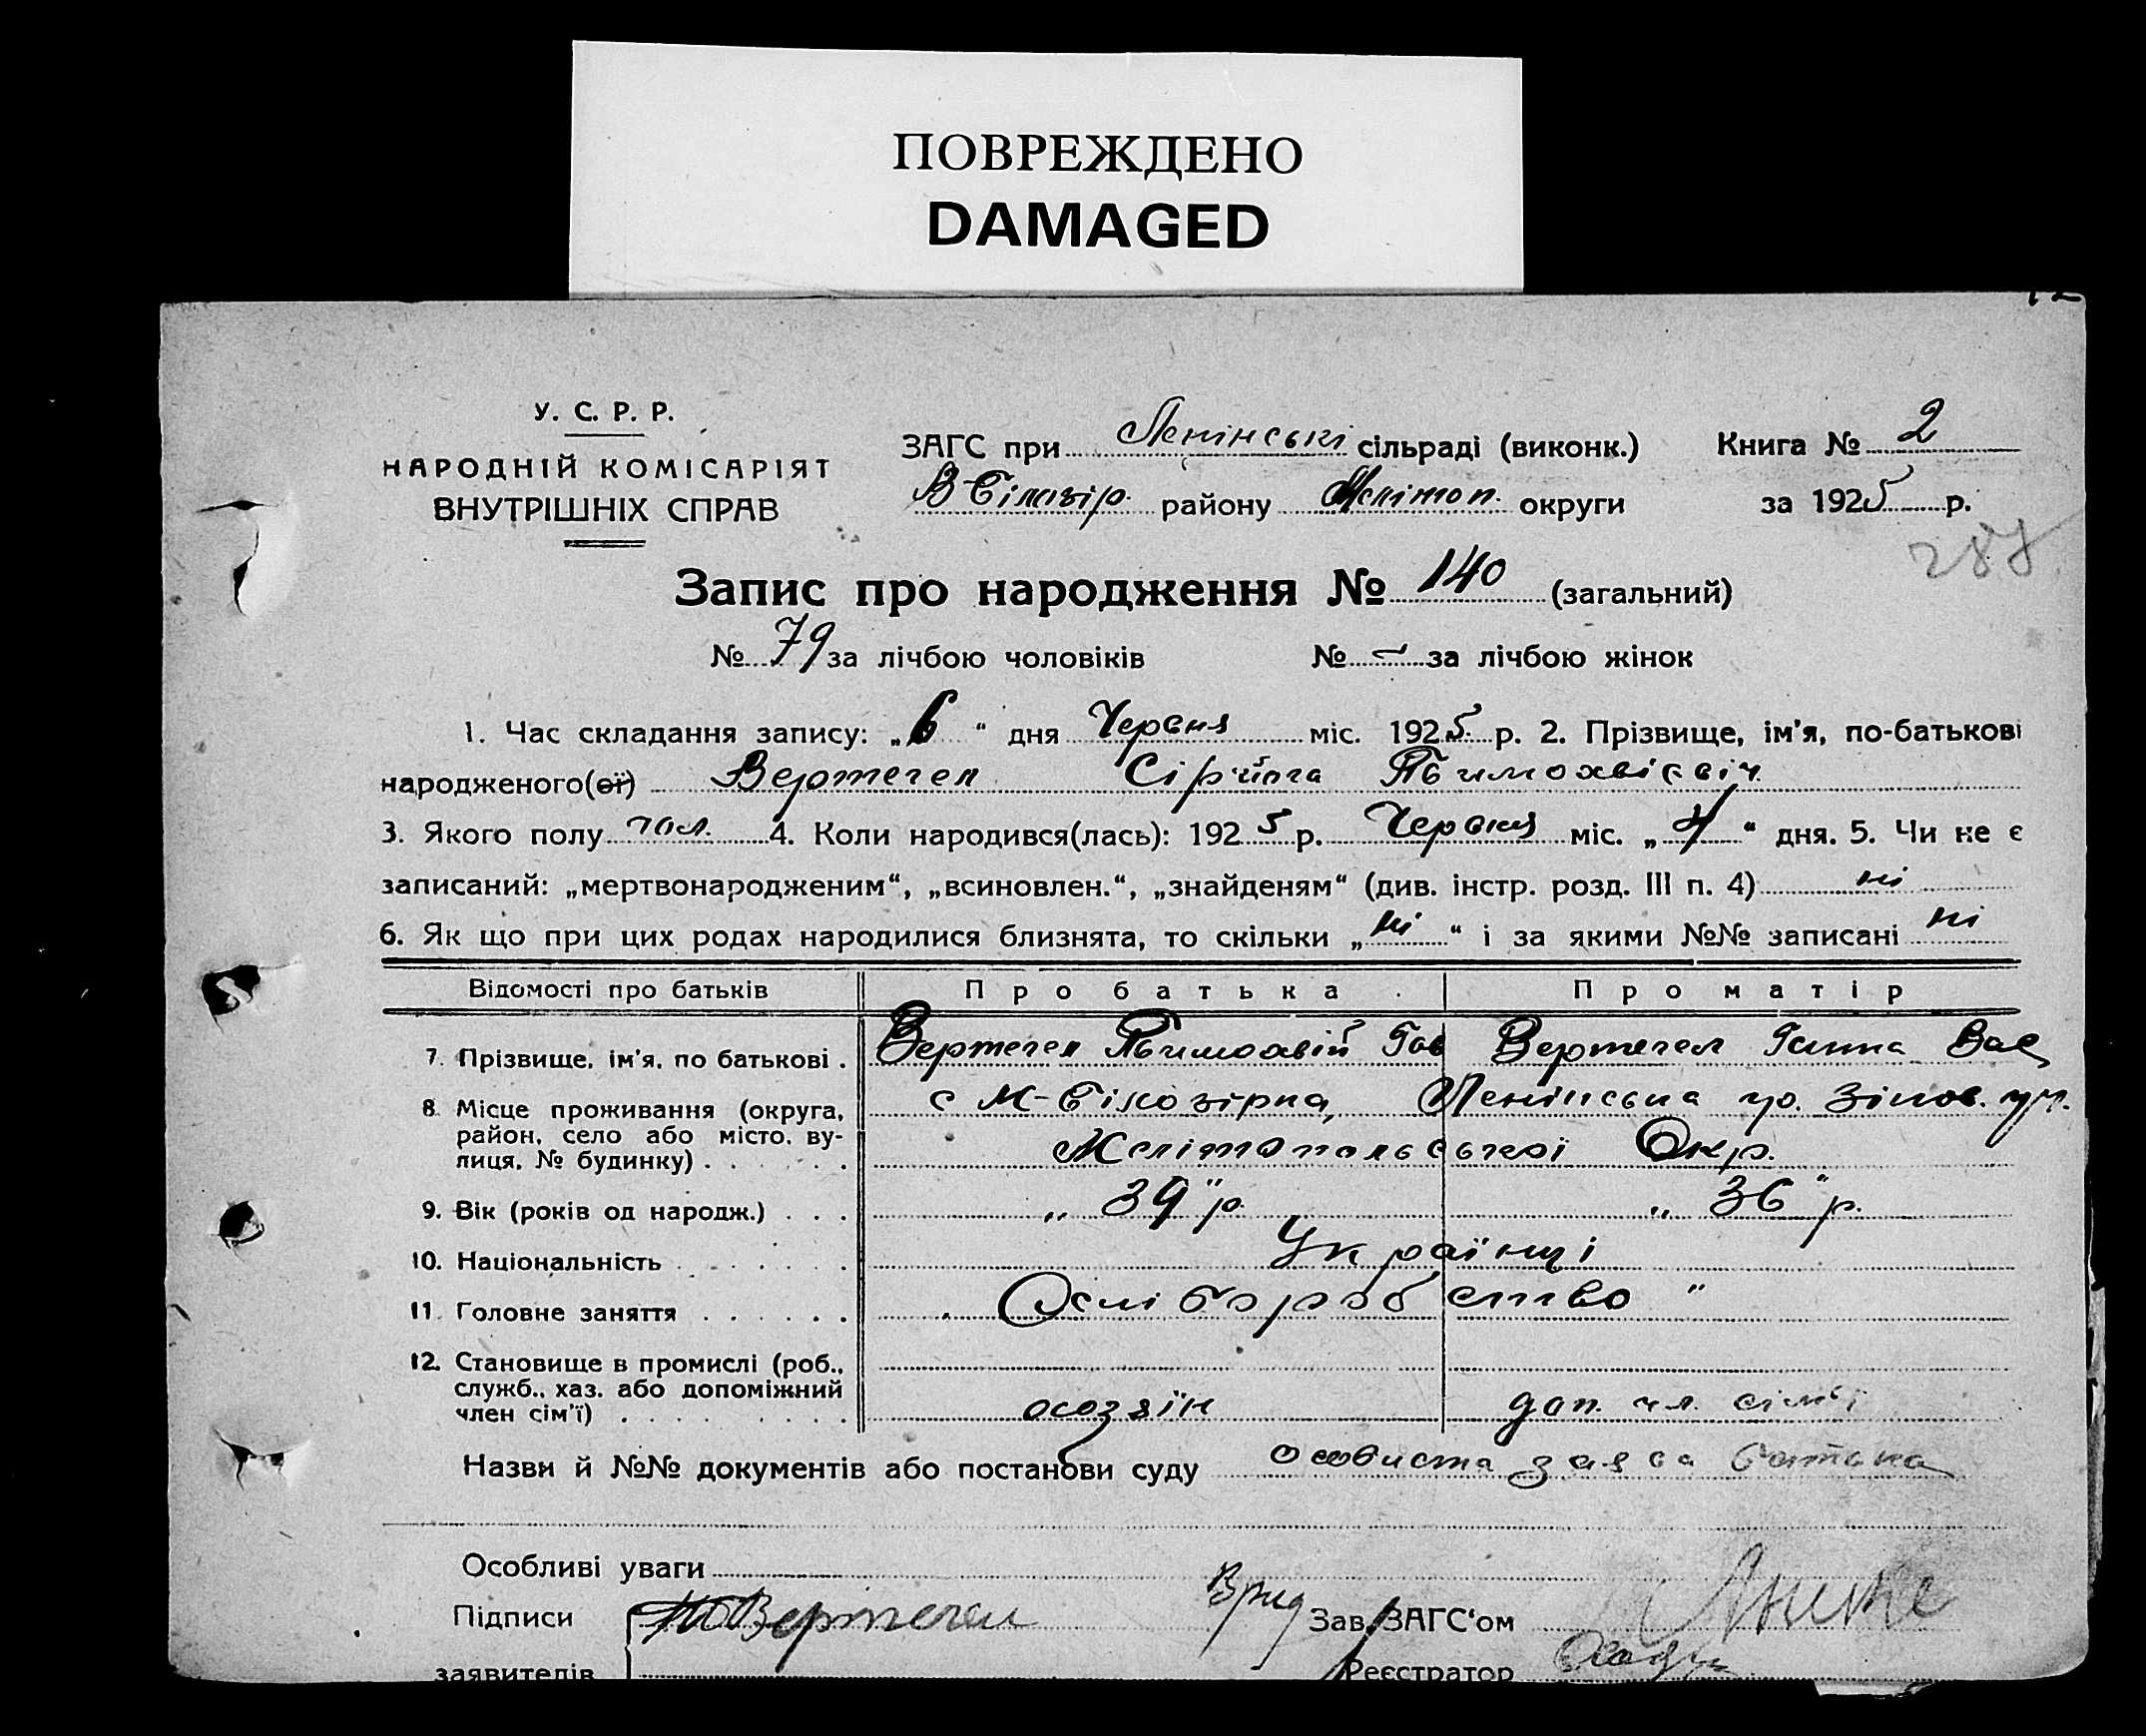 ПОВРЕЖДЕНО
DAMAGED
У. С. Р. Р.
НАРОДНІЙ КОМІСАРІЯТ
ВНУТРІШНІХ СПРАВ
ЗАГС при Ленінські сільраді (виконк.) Книга № 2
В Білозір. району Меліtop. округи за 1925 р.
287
Запис про народження № 140 (загальний)
№ 79 за лічбою чоловіків № – за лічбою жінок
1. Час складання запису: „6“ дня Червня міс. 1925 р. 2. Прізвище, ім'я, по-батькові
народженого(ої) Вертегел Сірйога Тимохвієвіч
3. Якого полу чол. 4. Коли народився(лась): 1925 р. Червня міс. „4“ дня. 5. Чи не є
записаний: „мертвонародженим“, „всиновлен.“, „знайденям“ (див. інстр. розд. III п. 4) ні
6. Як що при цих родах народилися близнята, то скільки „ні“ і за якими №№ записані ні
Відомості про батьків Про батька Про матір
7. Прізвище, ім'я, по батькові Вертегел Тимохвій Гав Вертегел Ганна Вас
8. Місце проживання (округа, район, село або місто, вулиця, № будинку) с М-Білозірка, Ленінська
Мелітопольської Окр.
9. Вік (років од народж.) „39“ р. „36“ р.
10. Національність Українці
11. Головне заняття Хліборобство "
12. Становище в промислі (роб.,
служб., хаз. або допоміжний
член сім'ї) хозяїн доп. чл. сім'ї
Назви й №№ документів або постанови суду особиста заява батька
Особливі уваги
Підписи Вертегел Врид Зав. ЗАГС'ом
заявителів Реєстратор